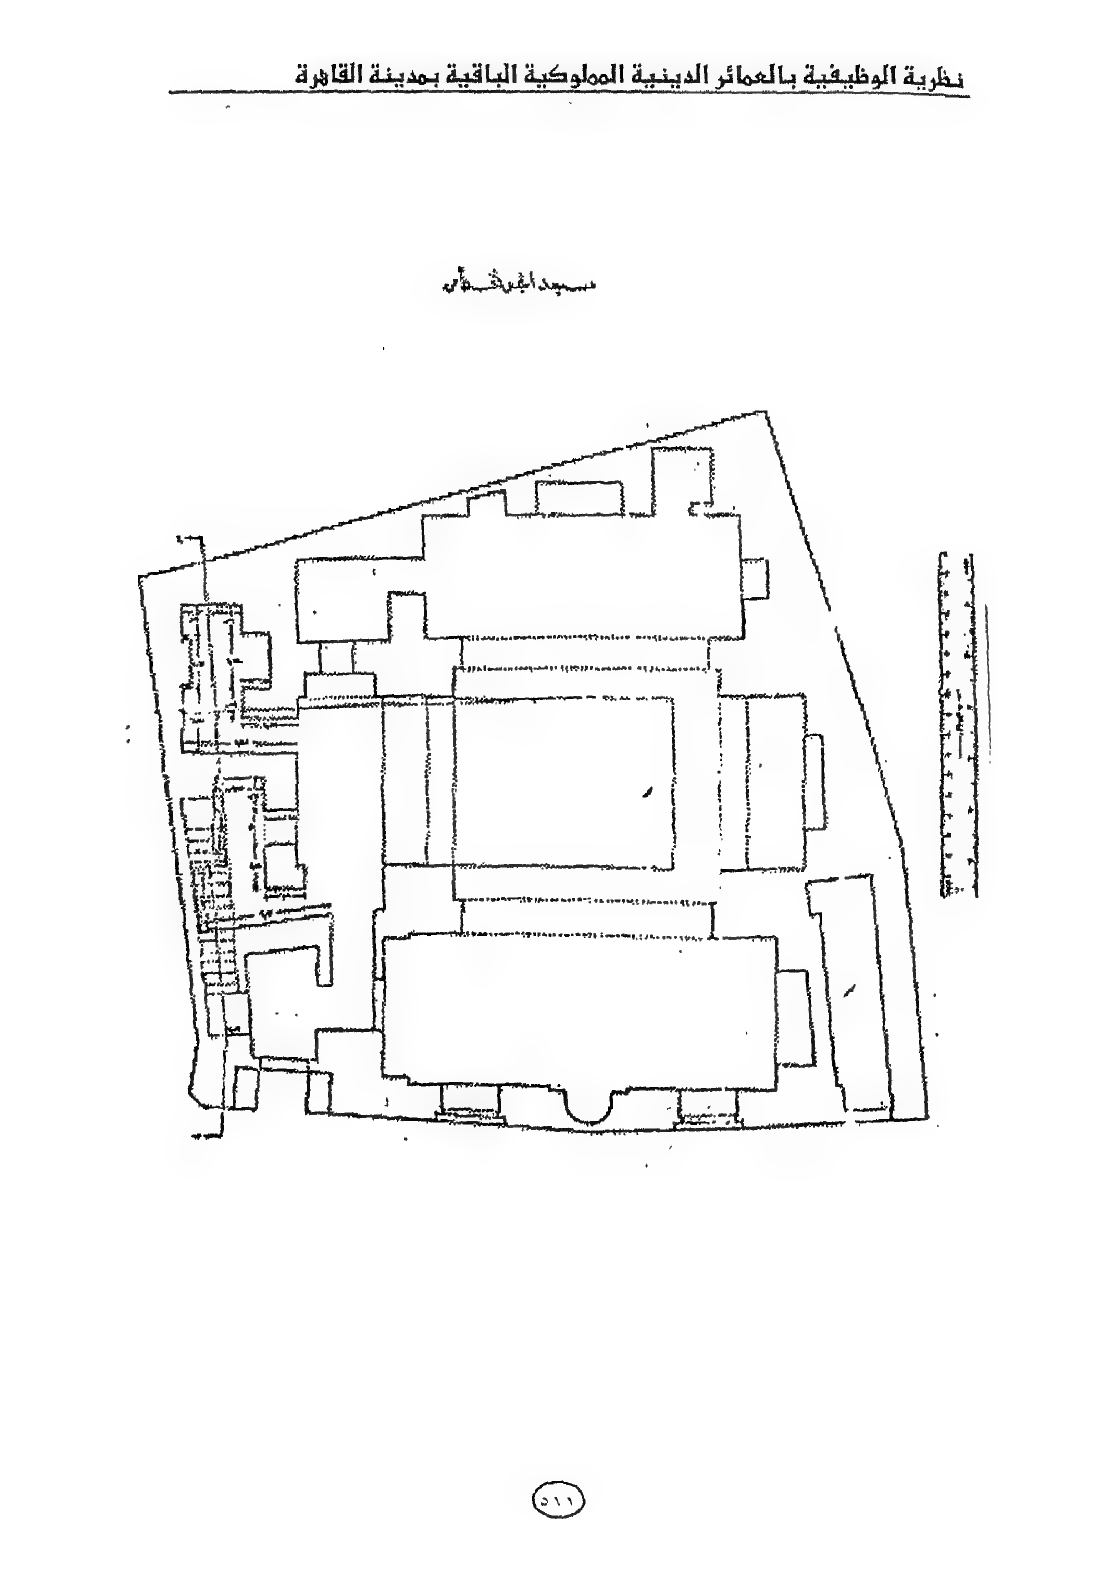 نظرية الوظيفية بالعمائر الدينية المملوكية الباقية بمدينة القاهرة
٥١١